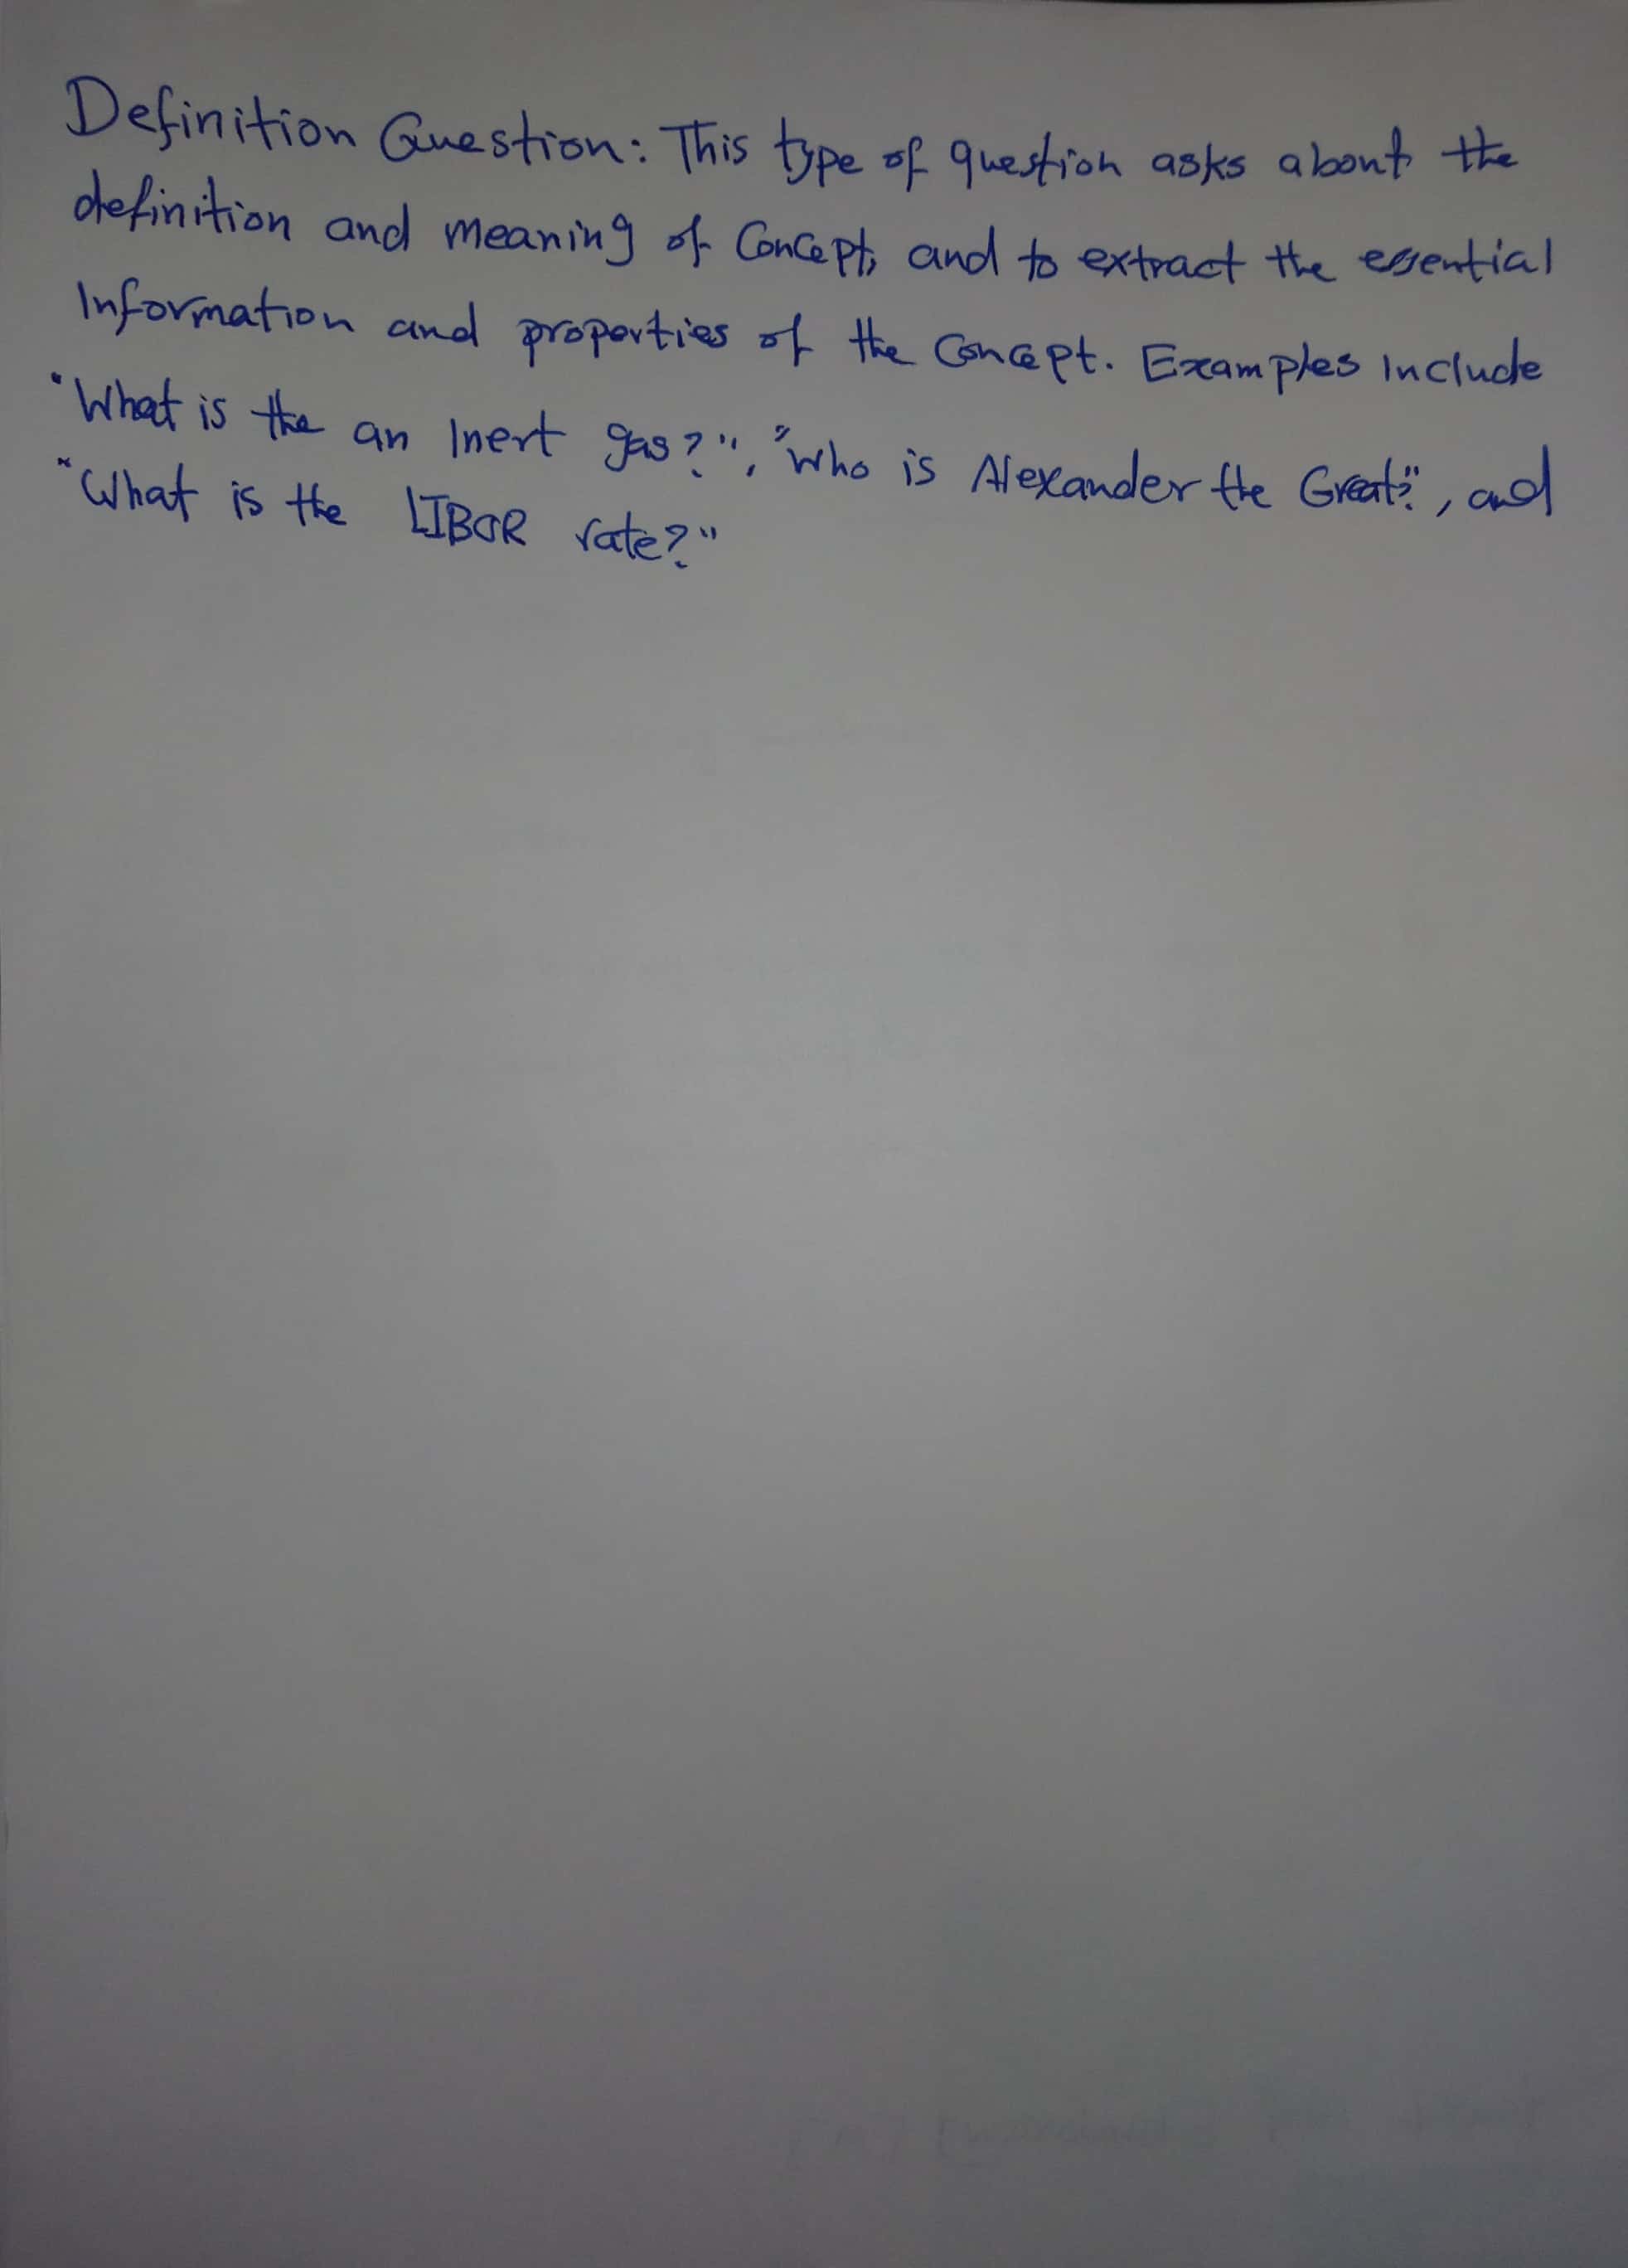 Definition Question: This type of question asks about the
definition and meaning of Concept, and to extract the essential
Information and properties of the Concept. Examples Include
"What is the an Inert gas?", "Who is Alexander the Great?", and
"What is the LIBOR rate?"